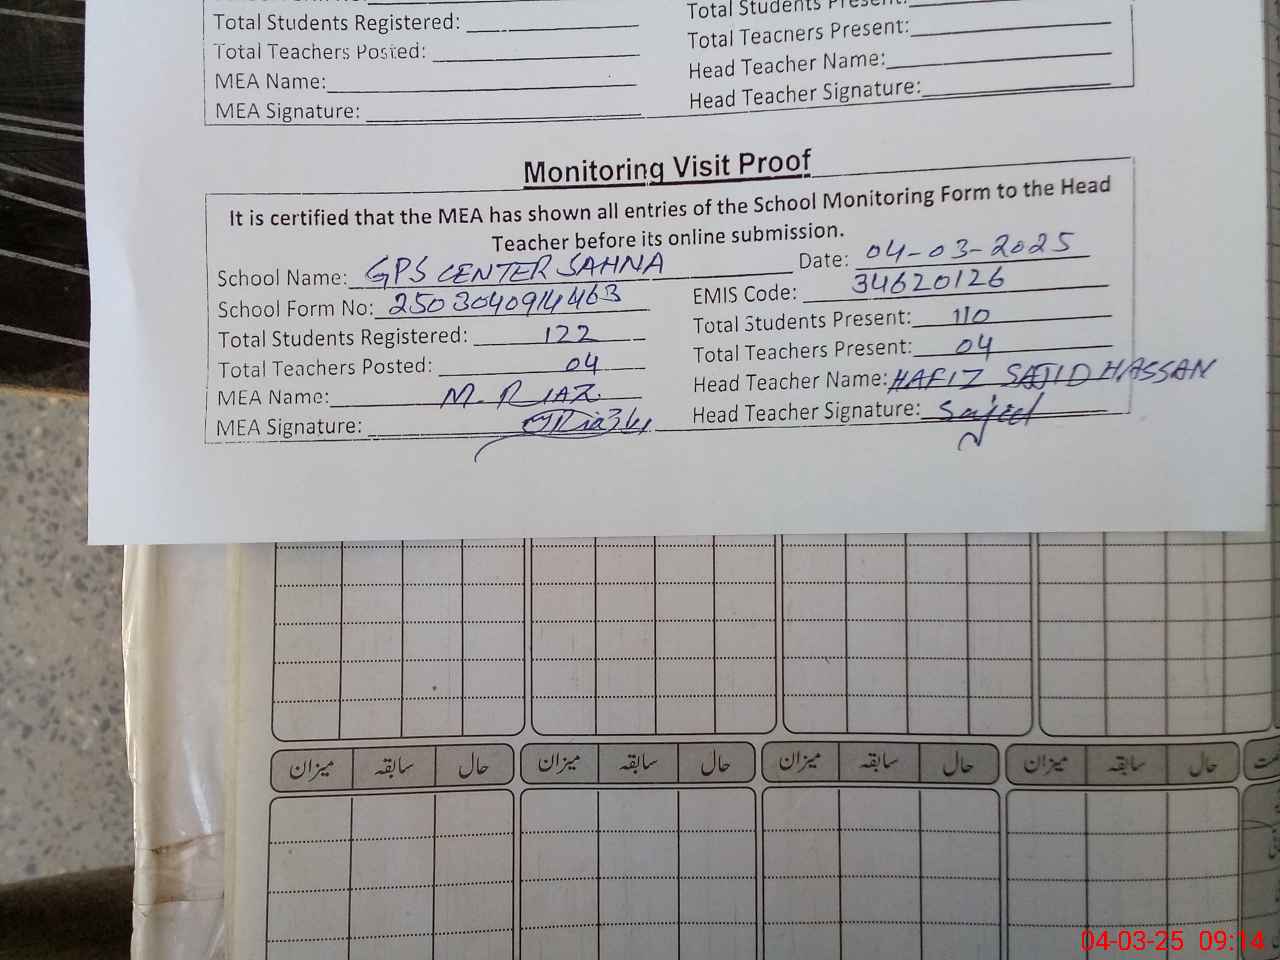 Total Students Present:
Total Students Registered:
Total Teachers Present:
Total Teachers Posted:
Head Teacher Name:
MEA Name:
Head Teacher Signature:
MEA Signature:
Monitoring Visit Proof
It is certified that the MEA has shown all entries of the School Monitoring Form to the Head
Teacher before its online submission.
School Name: GPS CENTER SAHNA Date: 04-03-2025
School Form No: 2503040914463 EMIS Code: 34620126
Total Students Registered: 122 Total Students Present: 110
Total Teachers Posted: 04 Total Teachers Present: 04
MEA Name: M. RIAZ Head Teacher Name: HAFIZ SAJID HASSAN
MEA Signature: Head Teacher Signature: Sajid
حال سابقہ میزان حال سابقہ میزان حال سابقہ میزان حال سابقہ میزان
04-03-25 09:14